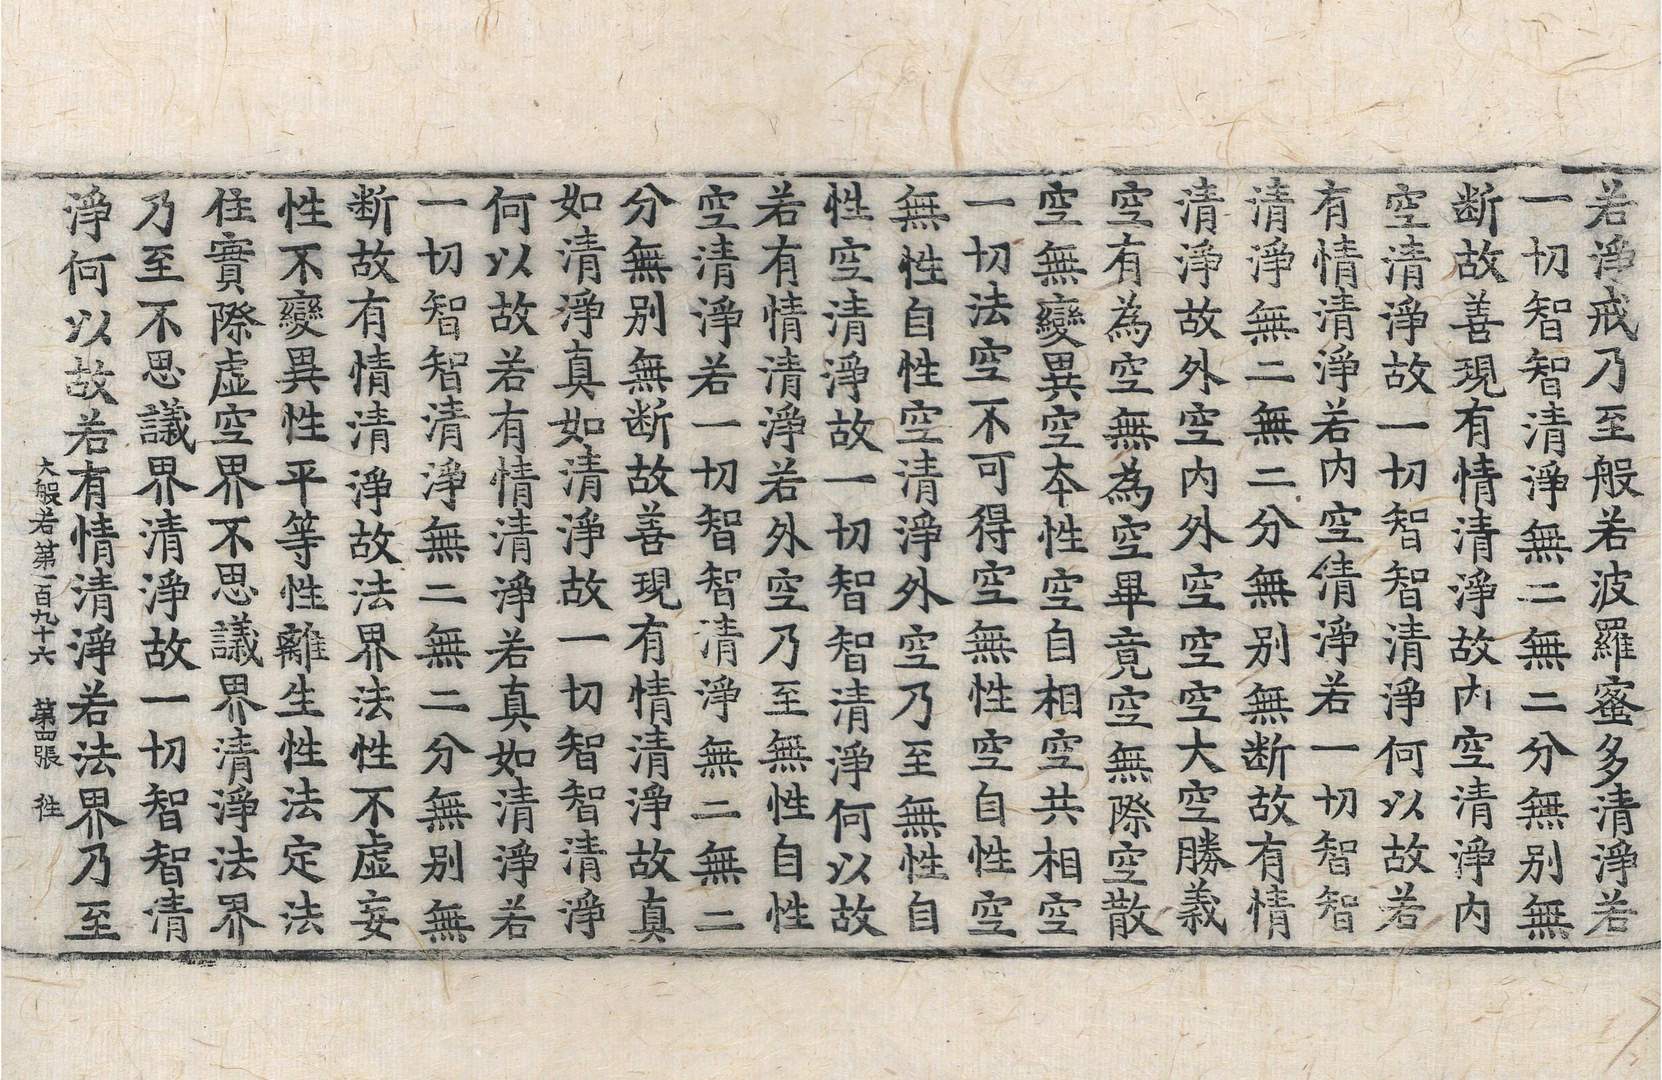 若淨戒乃至般若波羅蜜多清淨若
一切智智清淨無二無二分無別無
断故善現有情清淨故內空清淨內
空清淨故一切智智清淨何以故若
有情清淨若內空清淨若一切智智
清淨無二無二分無別無断故有情
清淨故外空內外空空空大空勝義
空有為空無為空畢竟空無際空散
空無變異空本性空自相空共相空
一切法空不可得空無性空自性空
無性自性空清淨外空乃至無性自
性空清淨故一切智智清淨何以故
若有情清淨若外空乃至無性自性
空清淨若一切智智清淨無二無二
分無別無断故善現有情清淨故真
如清淨真如清淨故一切智智清淨
何以故若有情清淨若真如清淨若
一切智智清淨無二無二分無別無
断故有情清淨故法界法性不虛妄
性不變異性平等性離生性法定法
住實際虛空界不思議界清淨法界
乃至不思議界清淨故一切智智清
淨何以故若有情清淨若法界乃至
大般若第一百九十六 第四張 徃